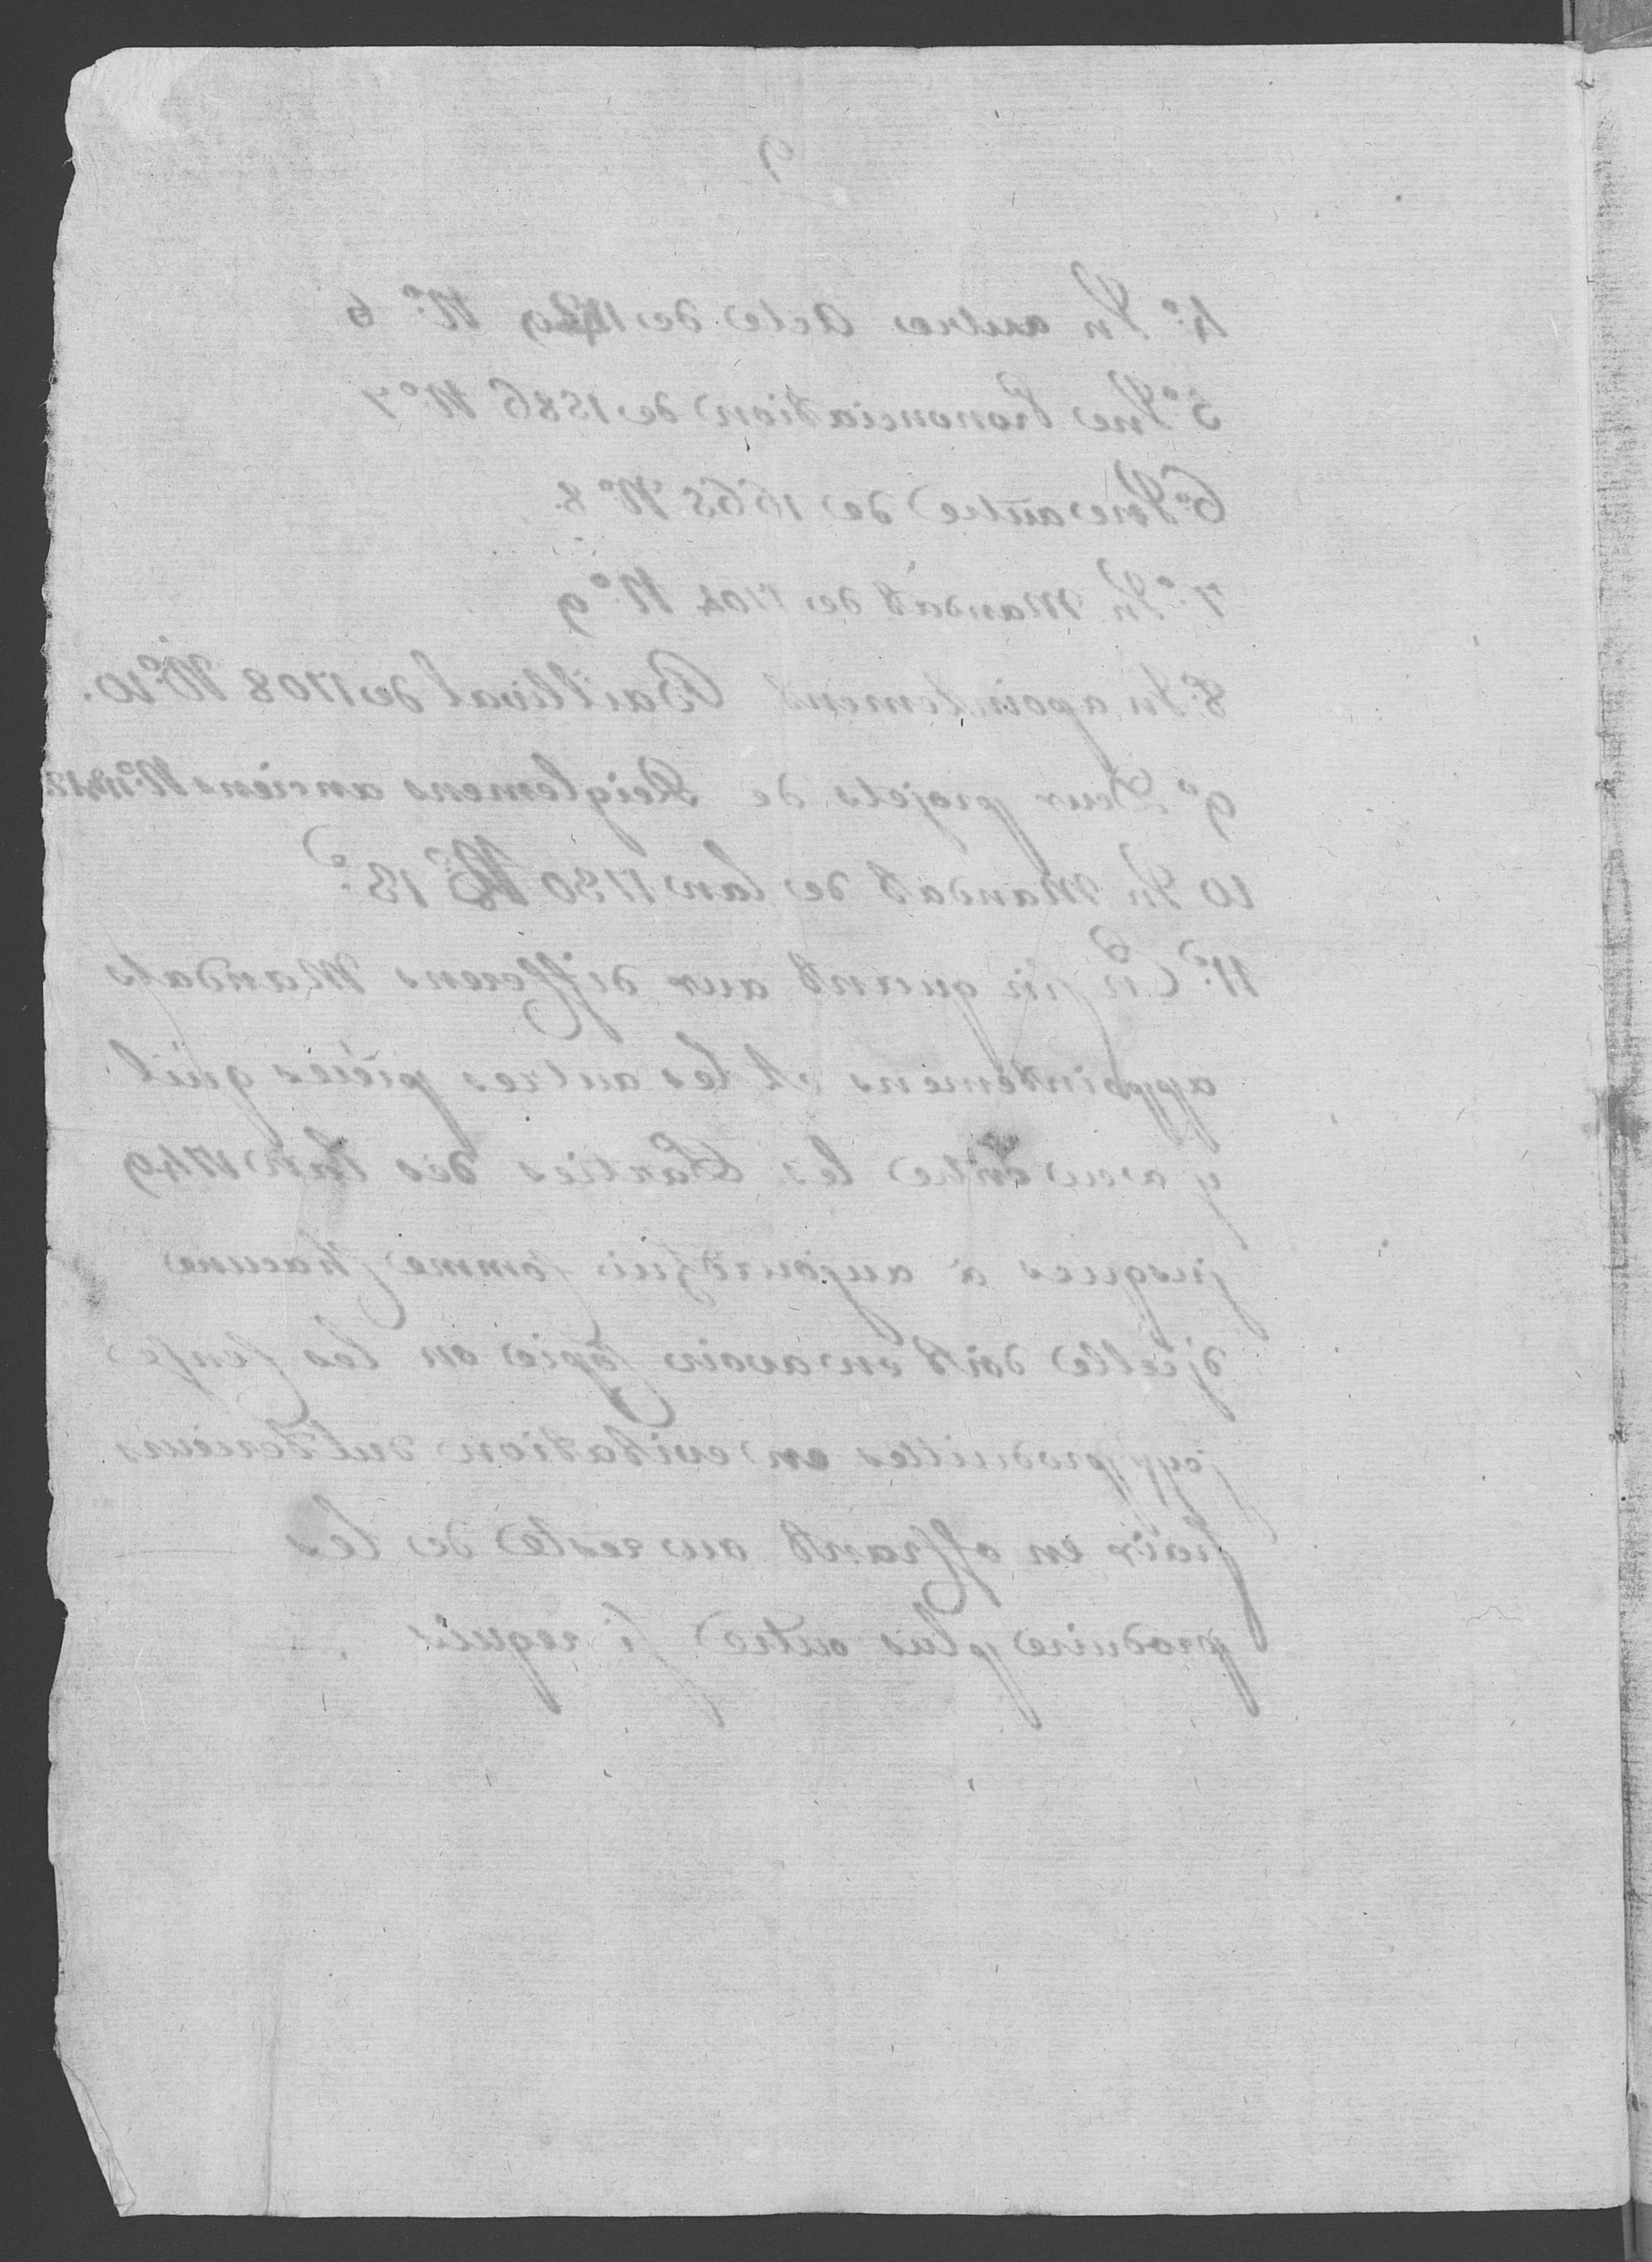 9
4.° Un autre acte de N.° 6
5.° Une Prononciation de 1586 N.° 7
6.° Une autre de 1665 N.° 8.
7.° Un Mandat de 1704 N.° 9
8.° Un apointement Baillival de 1708 N.° 10.
9.° Deux projets de Reiglemens anciens
10 Un Mandat de lan 1730 N.° 13.
11.° En fin quant aux differens Mandats
appointemens et les autres pièces quil
y a eu entre les Parties dès lan 1749
jusques à aujourdhui comme chacune
djcelle doit en avoir Copie on les
jcy produittes en evitation
fraix en offrant au reste de les
produire plus outre si requis